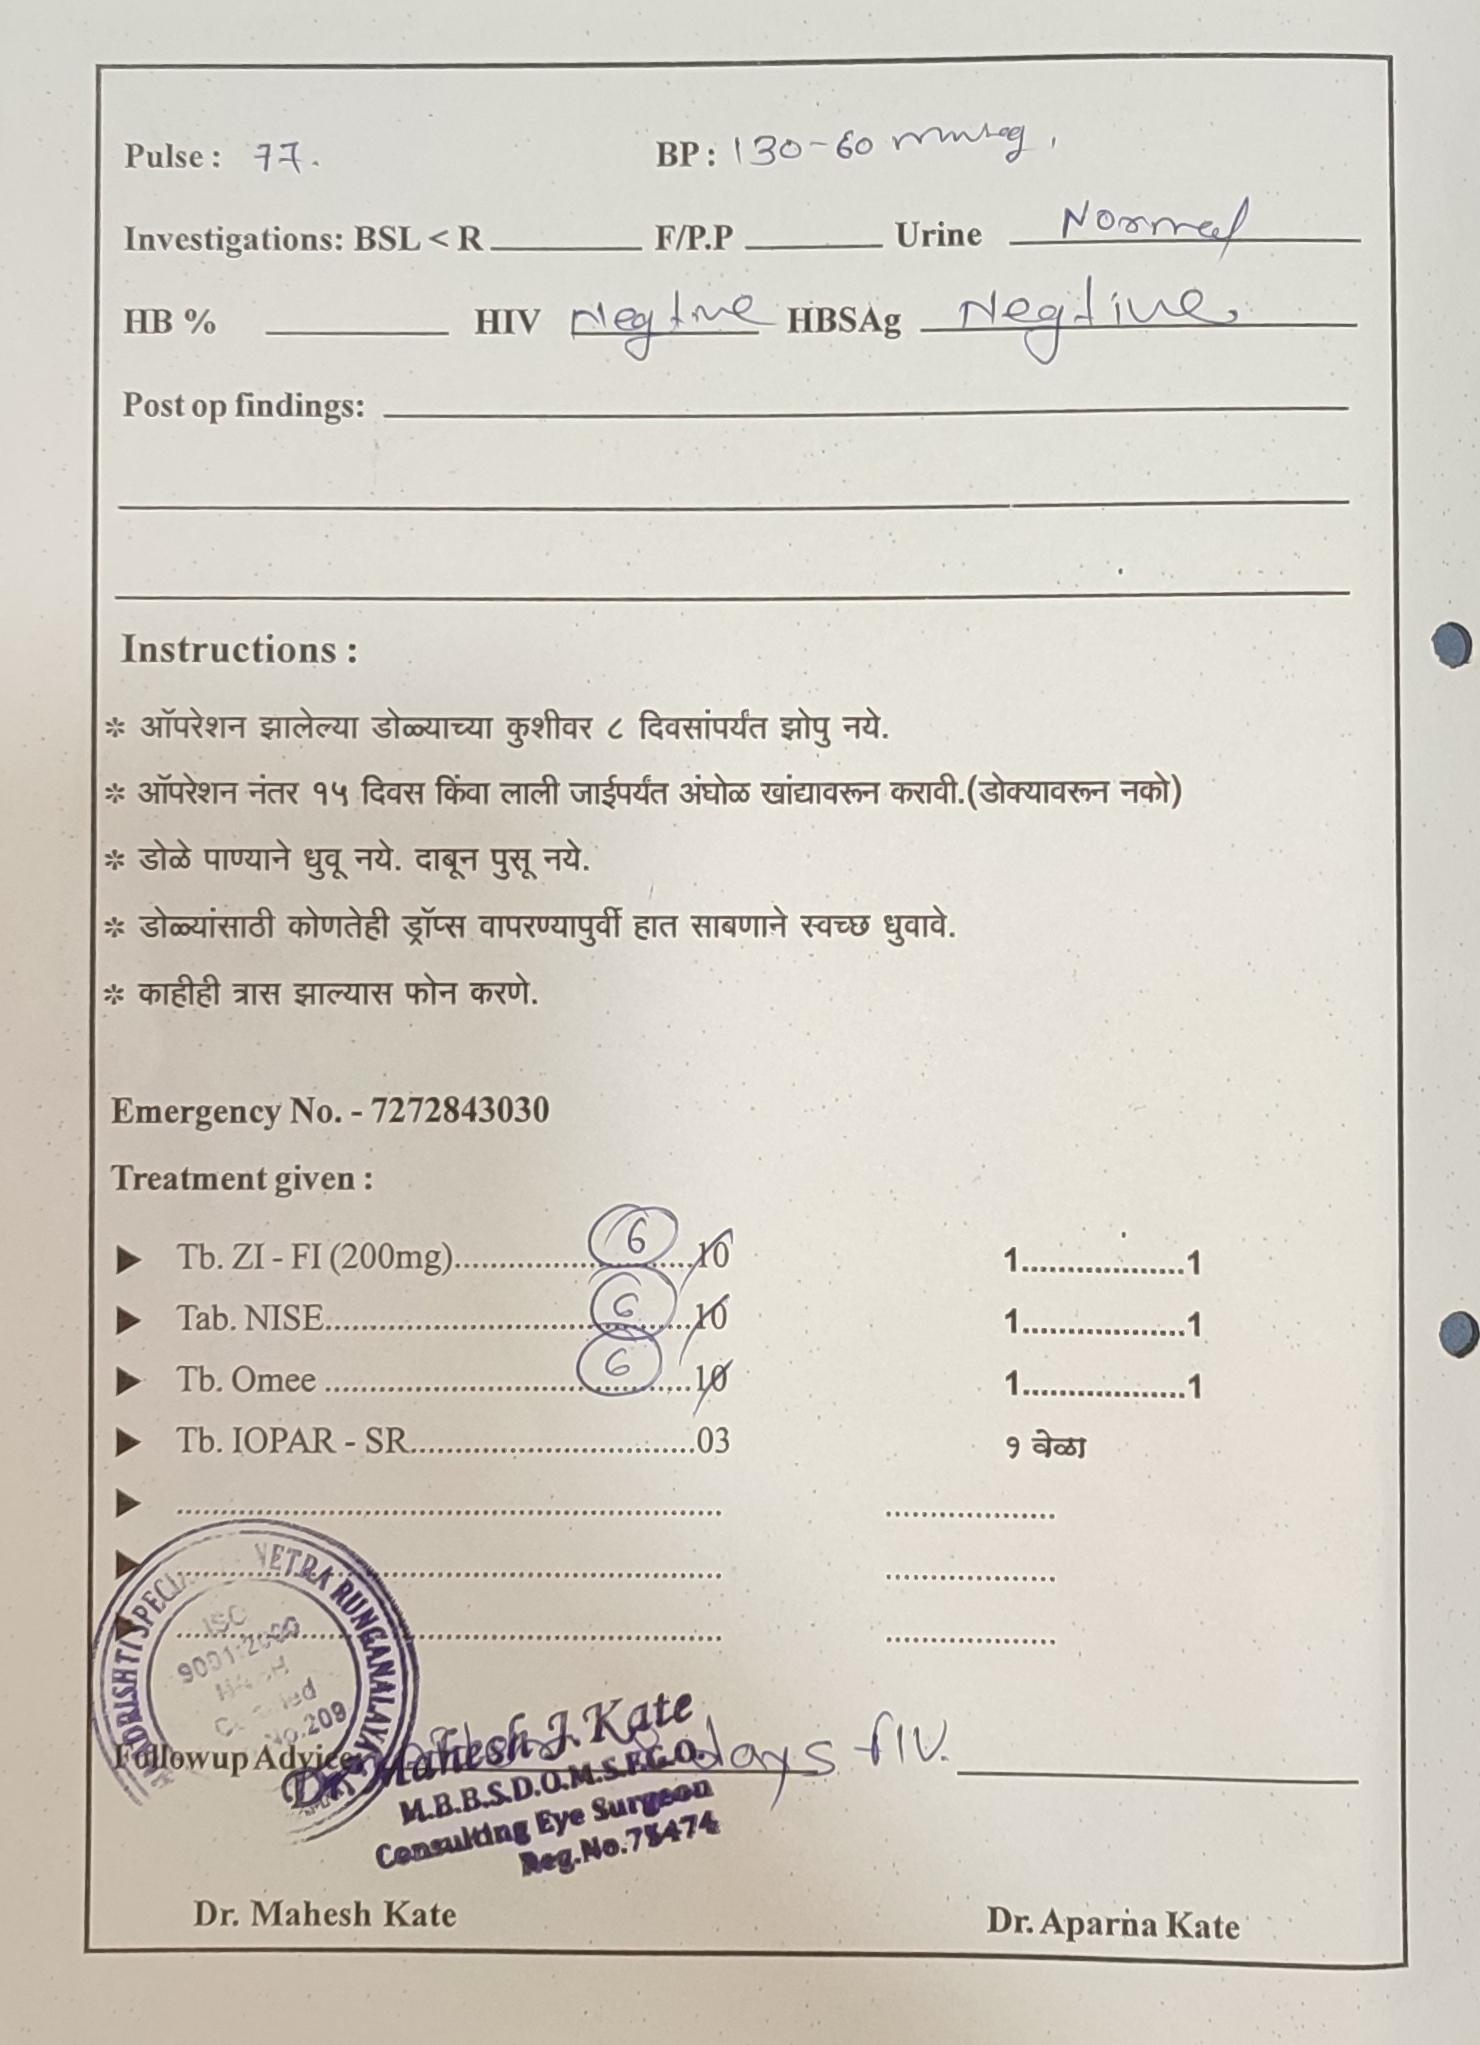 Pulse : 77.
BP : 130-60 mmhg.
Investigations: BSL < R ________ F/P.P ________ Urine Normal
HB % ________ HIV Negtive HBSAg Negtive.
Post op findings:
Instructions :
* ऑपरेशन झालेल्या डोळ्याच्या कुशीवर ८ दिवसांपर्यंत झोपु नये.
* ऑपरेशन नंतर १५ दिवस किंवा लाली जाईपर्यंत अंघोळ खांद्यावरून करावी.(डोक्यावरून नको)
* डोळे पाण्याने धुवू नये. दाबून पुसू नये.
* डोळ्यांसाठी कोणतेही ड्रॉप्स वापरण्यापुर्वी हात साबणाने स्वच्छ धुवावे.
* काहीही त्रास झाल्यास फोन करणे.
Emergency No. - 7272843030
Treatment given :
▶ Tb. ZI - FI (200mg)..................6 10 1..................1
▶ Tab. NISE..................6 10 1..................1
▶ Tb. Omee ..................6 10 1..................1
▶ Tb. IOPAR - SR..................03 १ वेळा
NETRA RUNGANALAYA
ISO
9001:2000
No.209
Followup Advice: days f/V.
Dr. Mahesh J. Kate
M.B.B.S.D.O.M.S.F.G.O.
Consulting Eye Surgeon
Reg.No.
Dr. Mahesh Kate
Dr. Aparna Kate